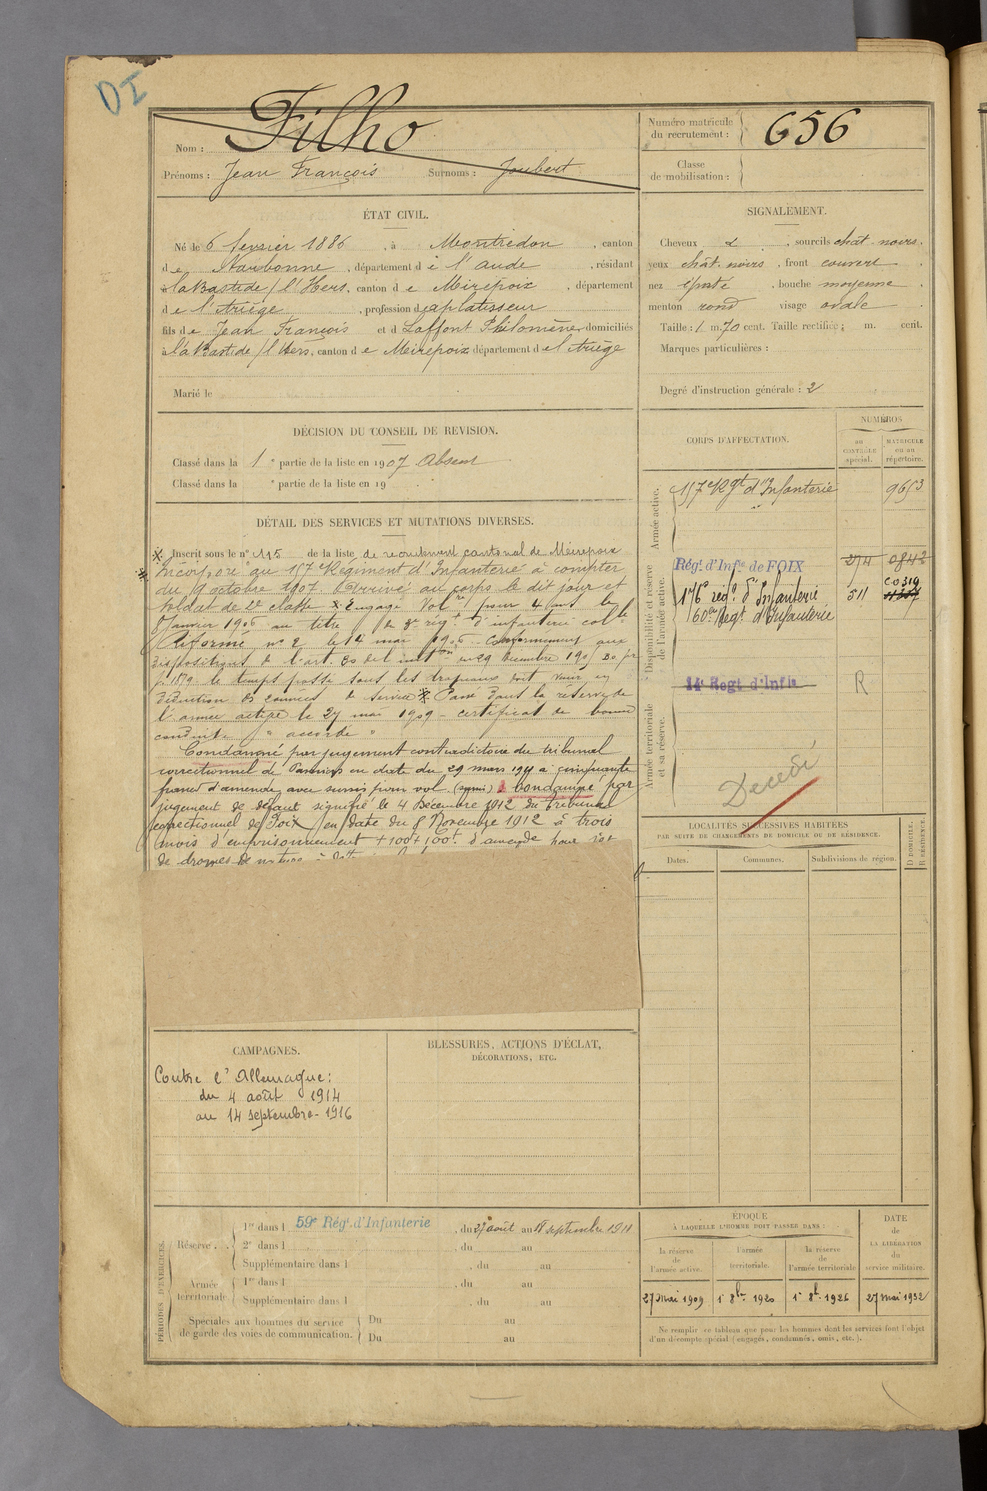 DI
Nom : Filho
Prénoms : Jean François Surnoms : Joubert
Numéro matricule du recrutement : 656
Classe de mobilisation :
ÉTAT CIVIL.
Né le 6 fevrier 1886, à Montredon, canton
de Narbonne, département de l'Aude, résidant
à la Bastide s/ l'Hers, canton de Mirepoix, département
de l'Ariège, profession d'aplatisseur
fils de Jean François et d Laffont Philomène domiciliés
à la Bastide s/ l'Hers, canton de Meirepoix département de l'Ariège
Marié le
SIGNALEMENT.
Cheveux d , sourcils chat. noirs.
yeux chât. noirs, front couvert
nez épaté, bouche moyenne
menton rond visage ovale
Taille : 1 m. 70 cent. Taille rectifiée : m. cent.
Marques particulières :
Degré d'instruction générale : 2
DÉCISION DU CONSEIL DE REVISION.
Classé dans la 1e partie de la liste en 1907 Absent
Classé dans la e partie de la liste en 19
CORPS D'AFFECTATION.
NUMÉROS
au CONTRÔLE spécial.
MATRICULE ou au répertoire.
Armée active.
157e Rgt d'Infanterie 9653
Disponibilité et réserve de l'armée active.
Rég. d'Infie de FOIX 274 0842
176e reg. d'Infanterie 511 C0319
160e Regt d'Infanterie
Armée territoriale et sa réserve.
14e Regt d'Infie R
Decedé
DÉTAIL DES SERVICES ET MUTATIONS DIVERSES.
Inscrit sous le n° 115 de la liste de recrutement cantonal de Meirepoix
Incorporé au 157e Régiment d'Infanterie à compter
du 9 octobre 1907. Arrivé au corps le dit jour et
soldat de 2e classe Engagé Vol. pour 4 ans le
8 Janvier 1906 au titre du 3e regt d'infanterie colle
Réformé n° 2 le 14 mai 1906 conformement aux
dispositions de l'art. 30 de l'inston
le temps passé sous les drapeaux doit venir en
déduction des années de service Passé dans la réserve de
l'armée active le 27 mai 1909 - certificat de bonne
conduite " accordé "
Condamné par jugement contradictoire du tribunal
correctionnel de Pamiers en date du 29 mars 1911 à cinquante
francs d'amende avec sursis pour vol. Condamné par
jugement de défaut signifié le 4 Décembre 1912 du Tribunal
correctionnel de Foix en date du 8 Novembre 1912 à trois
mois d'emprisonnement + 100 + 100f. d'amende pour
LOCALITÉS SUCCESSIVES HABITÉES
PAR SUITE DE CHANGEMENTS DE DOMICILE OU DE RÉSIDENCE.
Dates. Communes. Subdivisions de région. D DOMICILE. R RÉSIDENCE.
CAMPAGNES.
Contre l'Allemagne :
du 4 août 1914
au 14 septembre - 1916
BLESSURES, ACTIONS D'ÉCLAT,
DÉCORATIONS, ETC.
PÉRIODES D'EXERCICES.
Réserve. 1re dans l 59e Rég. d'Infanterie, du 27 août au 18 septembre 1911
2e dans l , du au
Supplémentaire dans l , du au
Armée territoriale 1re dans l , du au
Supplémentaire dans l , du au
Spéciales aux hommes du service de garde des voies de communication. Du au
Du au
ÉPOQUE
À LAQUELLE L'HOMME DOIT PASSER DANS :
la réserve de l'armée active. l'armée territoriale. la réserve de l'armée territoriale
DATE de LA LIBÉRATION du service militaire.
27 mai 1909 1r 8bre 1920 1r 8b. 1926 27 mai 1932
Ne remplir ce tableau que pour les hommes dont les services font l'objet
d'un décompte spécial (engagés, condamnés, omis, etc.).